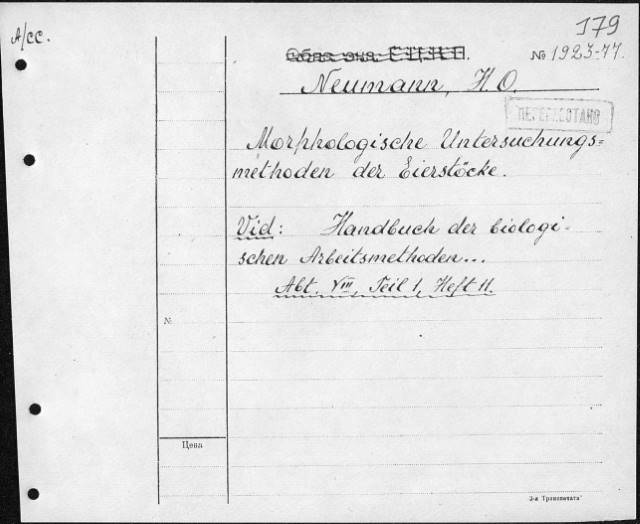 A/cc.
179
№ 1923-77.
Neumann, H.O.
ПЕРЕРАБОТАНО
Morphologische Untersuchungs=
methoden der Eierstöcke.
Vid: Handbuch der biologi-
schen Arbeitsmethoden...
Abt. VIII, Teil 1, Heft 11.
№
Цена
3-я Транспечать